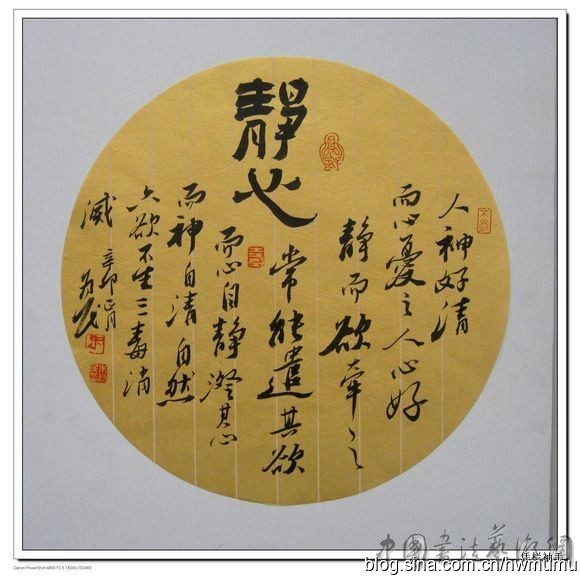 靜心
人神好清
而心憂之人心好
靜而欲牽之
常能遣其欲
而心自靜澄其心
而神自清自然
六欲不生三毒消
滅
辛卯正月
中國書法藝術網
blog.sina.com.cn/hwmtlmu